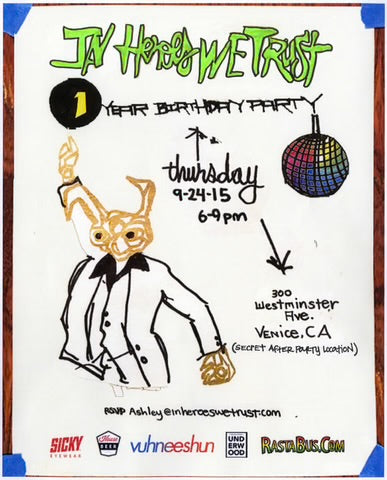 IN Heroes WE TRUST
1
YEAR BIRTHDAY PARTY
thursday
9-24-15
6-9 pm
300
Westminster
Ave.
VENICE, CA
(SECRET AFTER PARTY LOCATION)
RSVP Ashley@inheroeswetrust.com
SICKY
EYEWEAR
House
BEER
vuhneeshun
UND
ERW
OOD
RASTABUS.COM